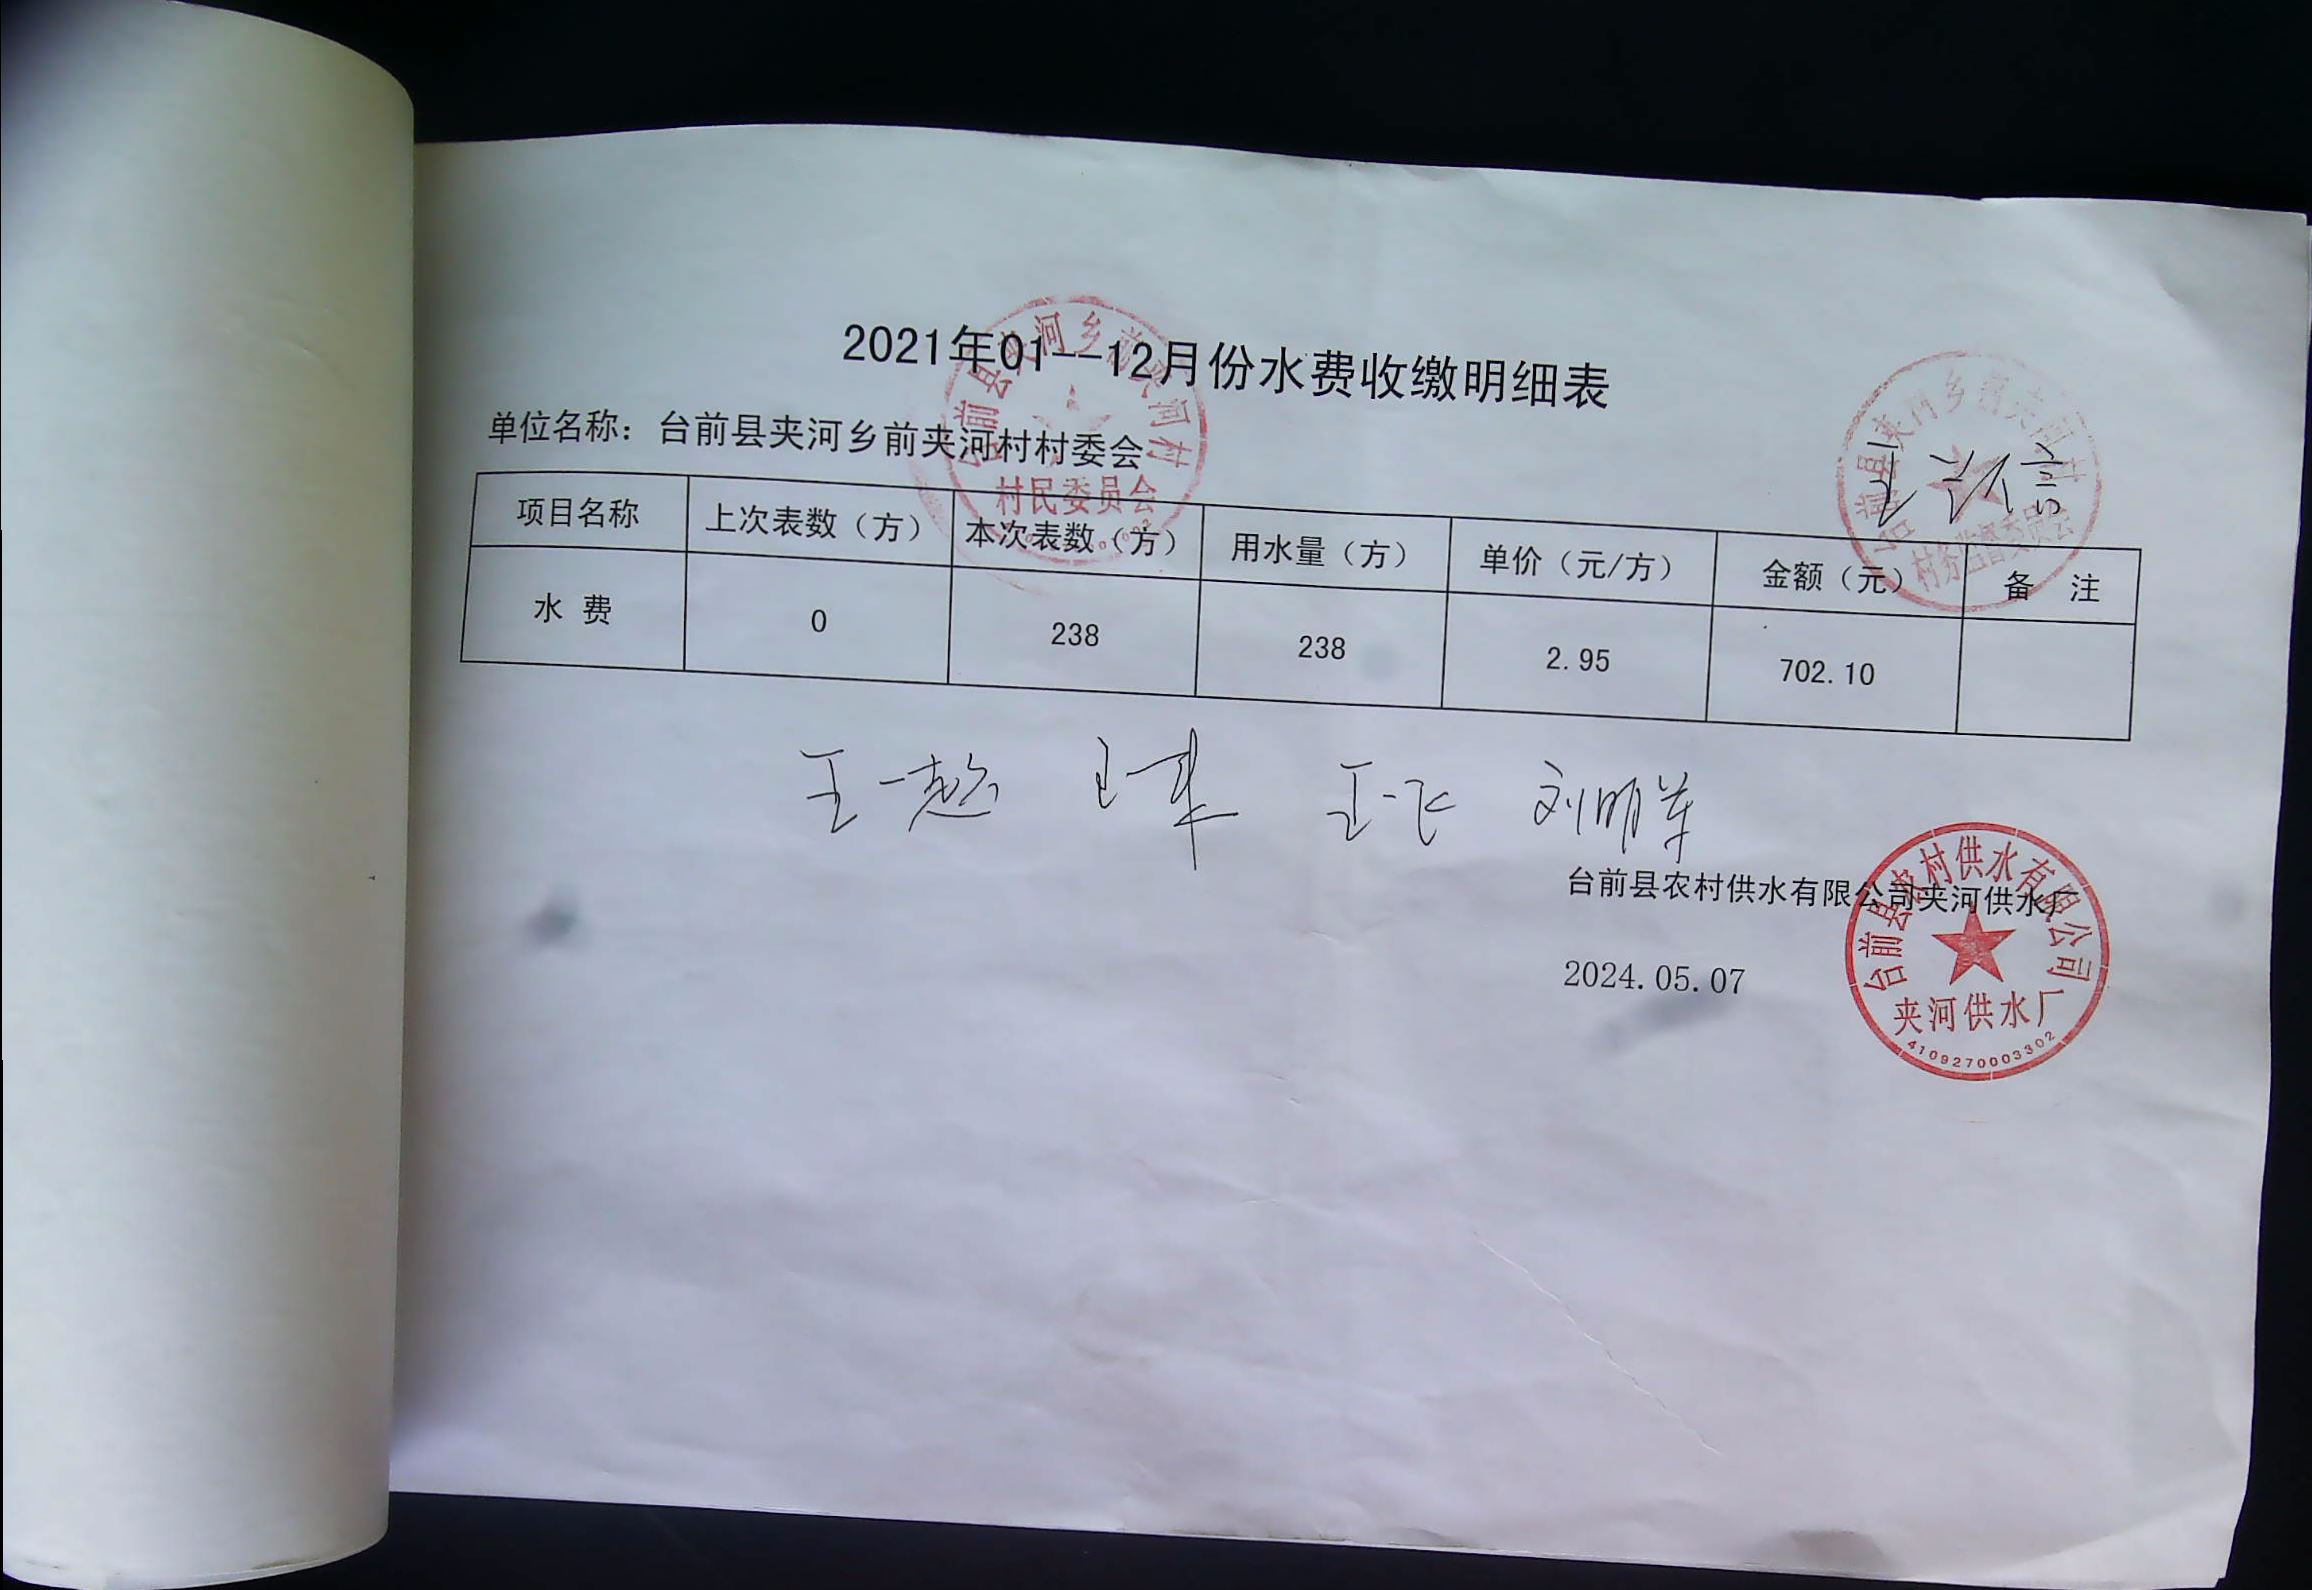 2021年01--12月份水费收缴明细表
单位名称：台前县夹河乡前夹河村村委会
项目名称 上次表数（方） 本次表数（方） 用水量（方） 单价（元/方） 金额（元） 备 注
水 费 0 238 238 2.95 702.10
台前县夹河乡前夹河村
村民委员会
台前县夹河乡前夹河村
村务监督委员会
王一超 王飞 刘明军
台前县农村供水有限公司夹河供水厂
2024.05.07
台前县农村供水有限公司
夹河供水厂
4109270003302